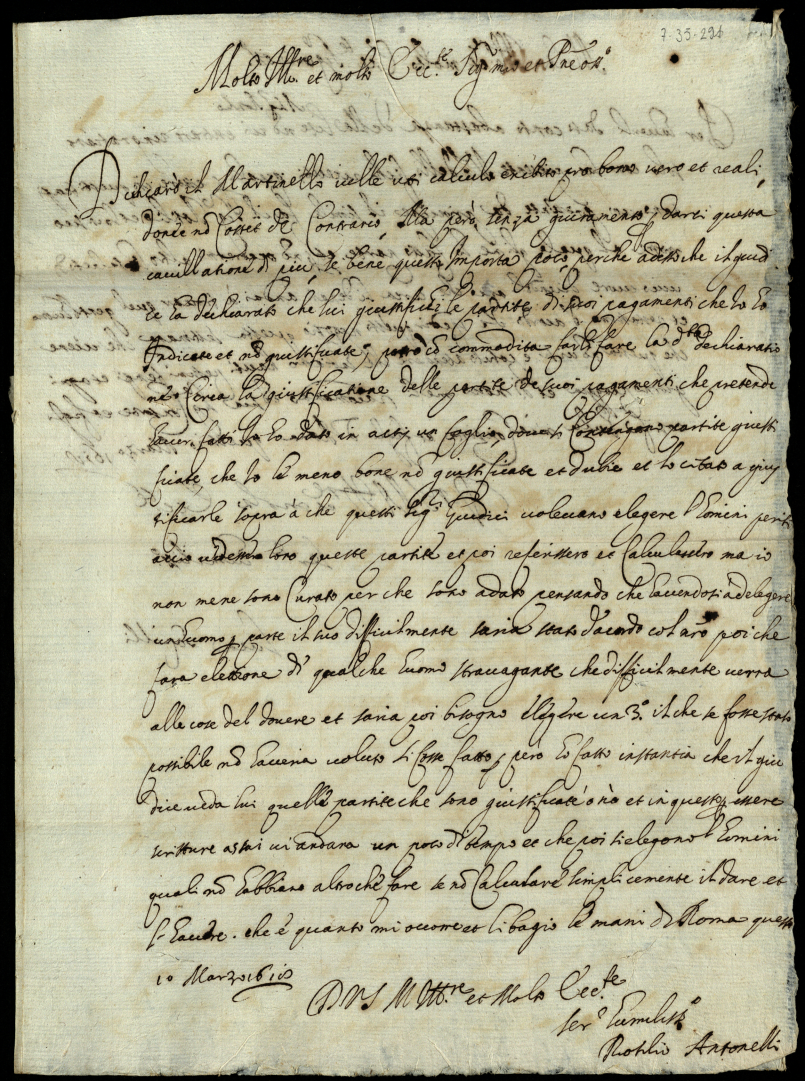 7-35-291
Molto Ill.re et molto Ecc.te Sig.r mio et
Dechiarò il Martinello velle uti calculo exibito pro bono vero et reali
donec nō Costet de Contrario, Ma però senza giuramento darci questa
cavillatione di piu, se bene questo importa poco perche adesso che il giudi
ce ha dechiarato che lui giustifichi le partite di suoi pagamenti che ho Io
Indicate et nō giustificate, potrò cō commodita farli fare la d.ta dechiaratio
ne Circa la giustificatione delle partite de suoi pagamenti che pretende
haver fatti Io ho dato in actis un foglio dove si Contengono partite giusti
ficate, che Io le meno bone nō giustificate et dubie et ho citato a gius
tificarle sopra à che questi Sig.ri Giudici volevano elegere homini periti
acciò vedessero loro queste partite et poi referissero et Calculassero ma io
non mene sono Curato per che sono adato pensando che havendosi à delegere
un huomo parte il suo difficilmente saria stato d'acordo col nro poi che
fara elettione di qualche huomo stravagante che difficilmente verra
alle cose del dovere et saria poi bisogno elegere un 3.o il che se fosse stato
possibile nō haveria voluto si fosse fatto, però ho fatto instantia che il giu
dice veda lui quelle partite che sono giustificate ò nò et in questo essere
scritture assai vi andara un poco di tempo et che poi si elegono homini
quali nō habbiano altro che fare se nō Calculare simplicemente il dare et
l'havere. che è quanto mi occorre et li bagio le mani di Roma questo
10 Marzo
D V S M Ill.re et Molto Ecc.te
Ser.e humiliss.o
Antonelli